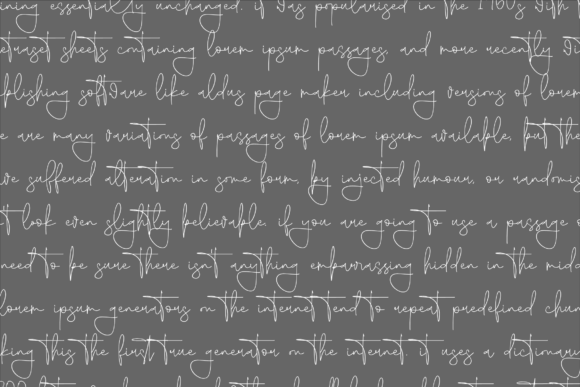 ning essentially unchanged. if was popularised in the 1960s with
etraset sheets containing lorem ipsum passages, and more recently
blishing software like aldus page maker including versions of lorem
e are many variations of passages of lorem ipsum available, but the
ve suffered alteration in some form, by injected humour, or randomis
t look even slightly believable. if you are going to use a passage o
need to be sure there isn't anything embarrassing hidden in the midd
lorem ipsum generators on the internet tend to repeat predefined chun
king this the first true generator on the internet. it uses a dictionary